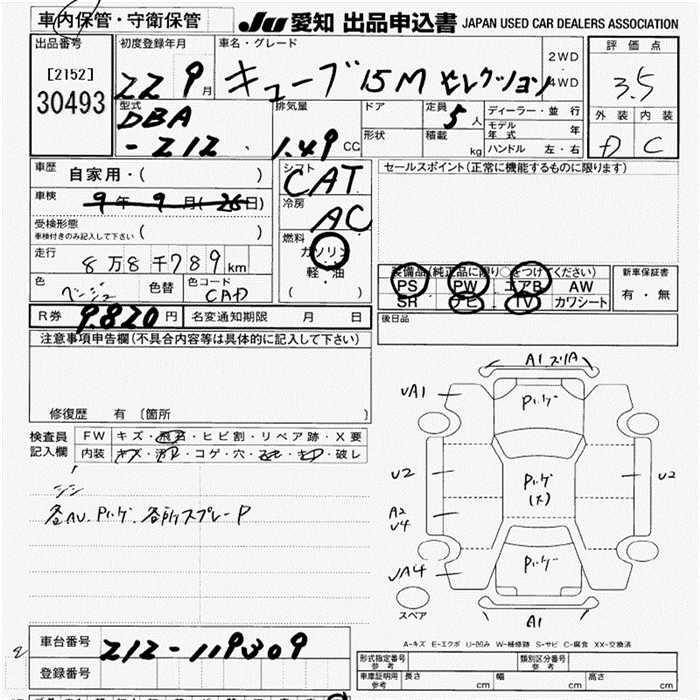 車内保管・守衛保管 JU 愛知 出品申込書 JAPAN USED CAR DEALERS ASSOCIATION
出品番号 初度登録年月 車名・グレード 評価点
[2152] 22 9月 キューブ 15M セレクション 2WD・4WD 3.5
30493 型式 排気量 ドア 定員 ディーラー・並行 外装 内装
DBA 5人 モデル年式 年
-Z12 1.49 CC 形状 積載 kg ハンドル 左・右 D C
車歴 自家用・( ) シフト セールスポイント(正常に機能するものに限ります)
CAT
車検 9年9月(26日) 冷房
AC
受検形態 ( )
車検付きのみ記入して下さい
燃料
ガソリン
走行 8万8千789km 軽・油 装備品(純正品に限り○をつけてください) 新車保証書
色 ベージュ 色替 色コード CAD ( ) PS PW エアB AW 有・無
SR ナビ TV カワシート
R券 9.820円 名変通知期限 月 日 後日品
注意事項申告欄(不具合内容等は具体的に記入して下さい)
修復歴 有〔箇所 〕
検査員 FW キズ・飛石・ヒビ割・リペア跡・X要
記入欄 内装 キズ・汚れ・コゲ・穴・・破レ
各AU.Pハゲ.各所スプレーP
A1 スリA
UA1 Pハゲ
U2 Pハゲ(大) U2
A2
U4
UA4 Pハゲ
スペア A1
A-キズ E-エクボ U-凹み W-補修跡 S-サビ C-腐食 XX-交換済
車台番号 Z12-119309
登録番号
形式指定番号 参考 類別区分番号 参考
車庫証明用 参考 長さ cm 幅 cm 高さ cm